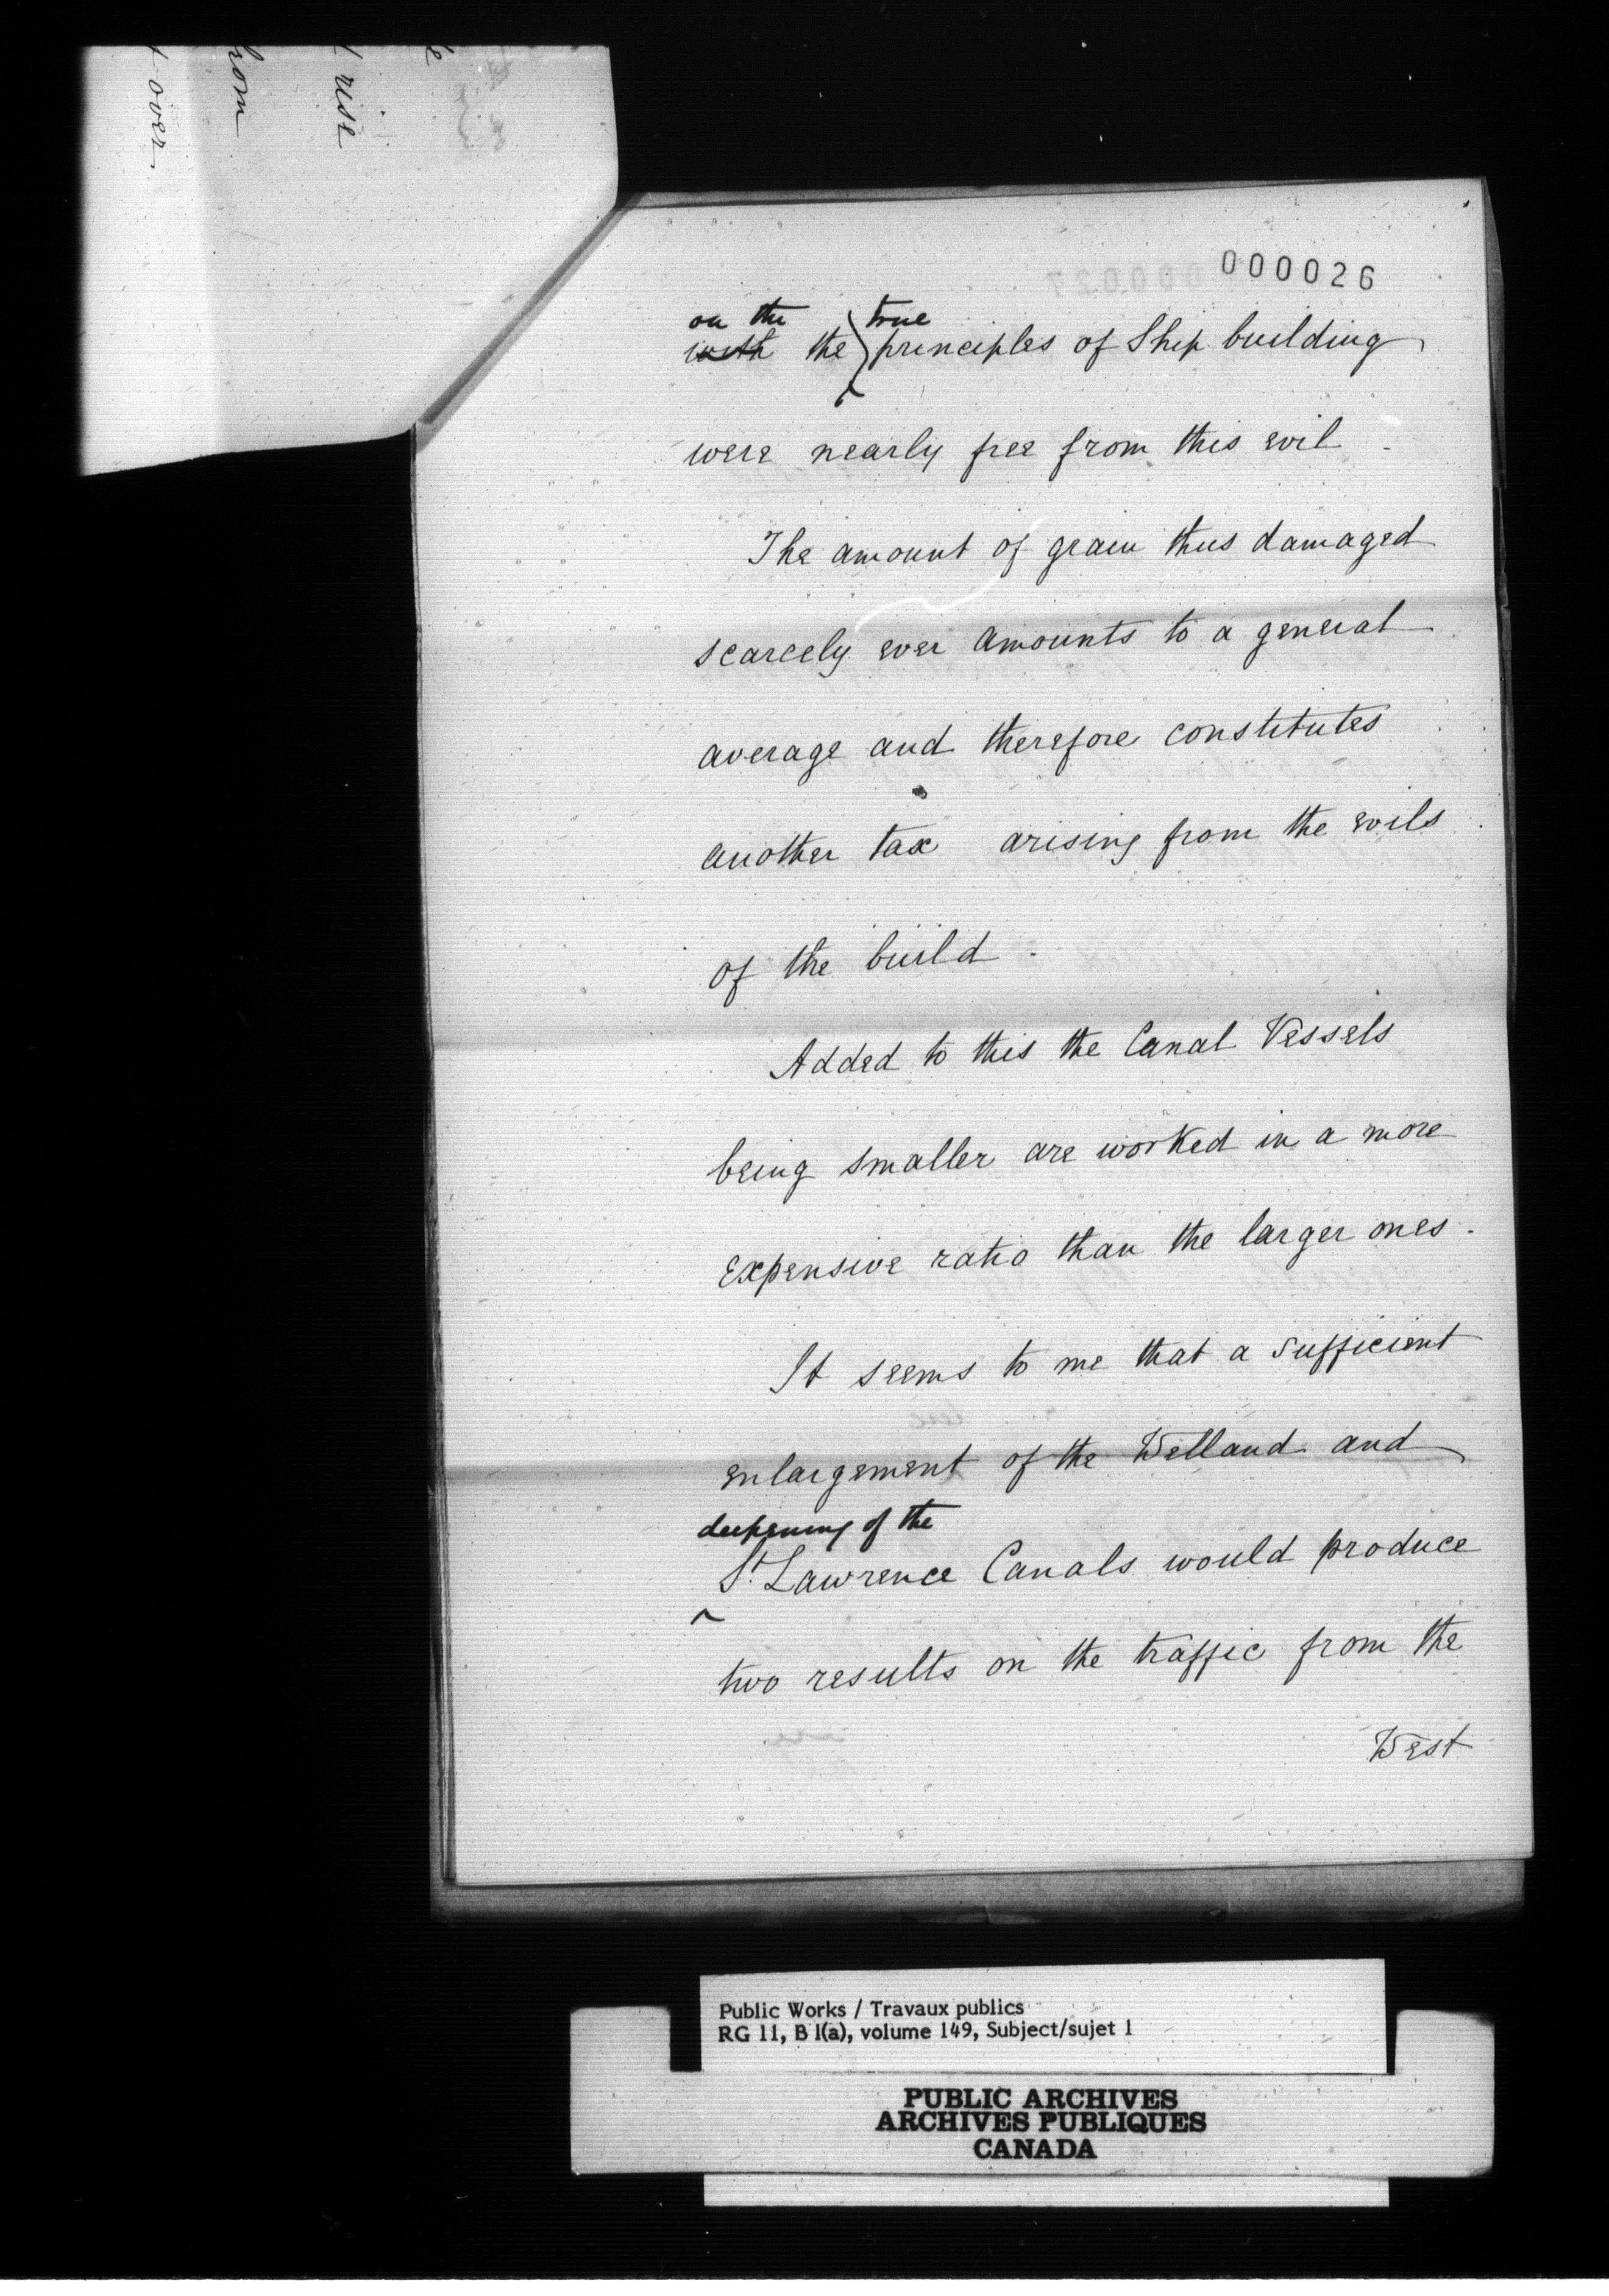 rise
hom
t over
000026
on the true
with the principles of Ship building
were nearly free from this evil .
The amount of grain thus damaged
scarcely ever amounts to a general
average and therefore constitutes
another tax arising from the evils
of the build .
Added to this the Canal Vessels
being smaller are worked in a more
expensive ratio than the larger ones .
It seems to me that a sufficient
enlargement of the Welland and
deepening of the
St. Lawrence Canals would produce
two results on the traffic from the
West
Public Works / Travaux publics
RG 11, B 1(a), volume 149, Subject/sujet 1
PUBLIC ARCHIVES
ARCHIVES PUBLIQUES
CANADA